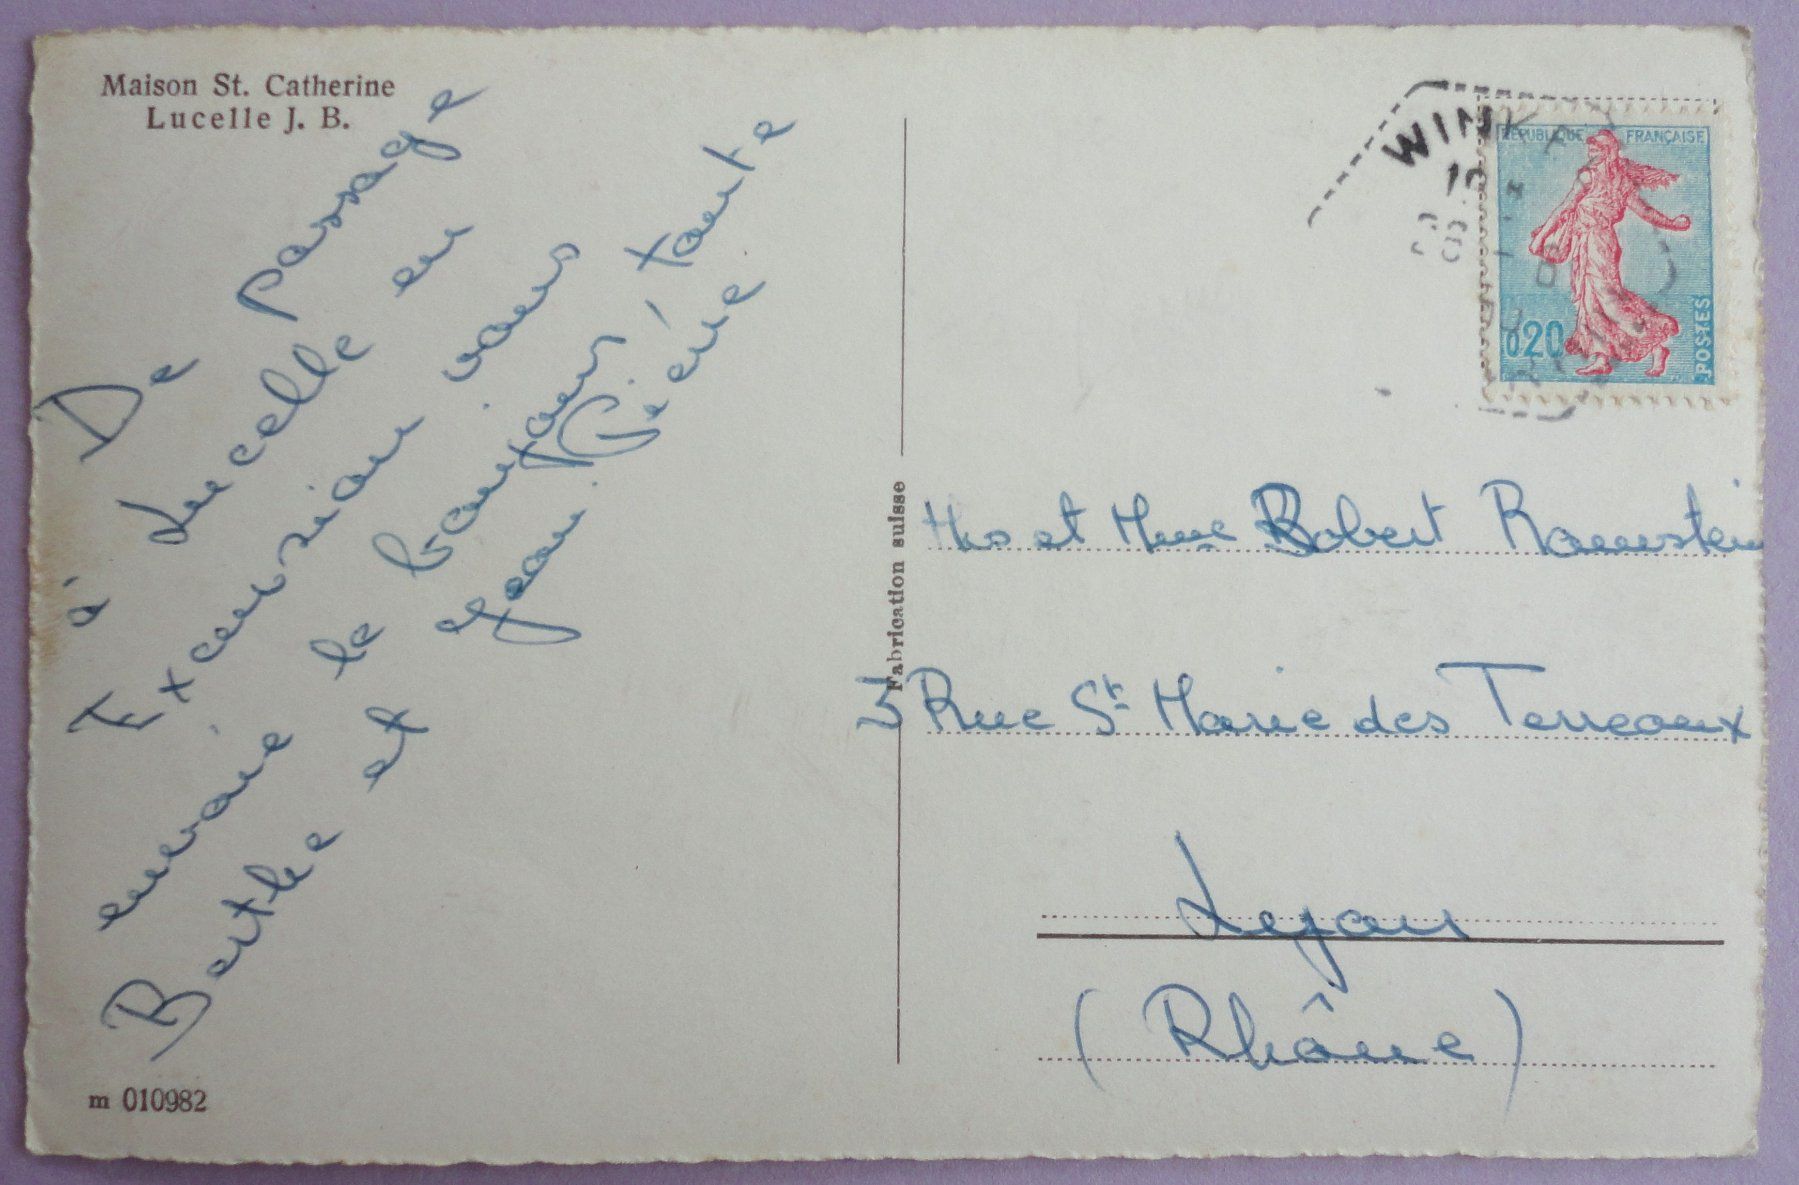 Maison St. Catherine
Lucelle J. B.
De passage
à Lucelle en
Excursion vous
envoie le bonjour, tante
Berthe et Jean. Pierre
m 010982
Fabrication suisse
WIN
REPUBLIQUE FRANÇAISE
0,20
POSTES
et Mme Robert Ramstein
5 Rue St Marie des Terreaux
Lyon
(Rhône)